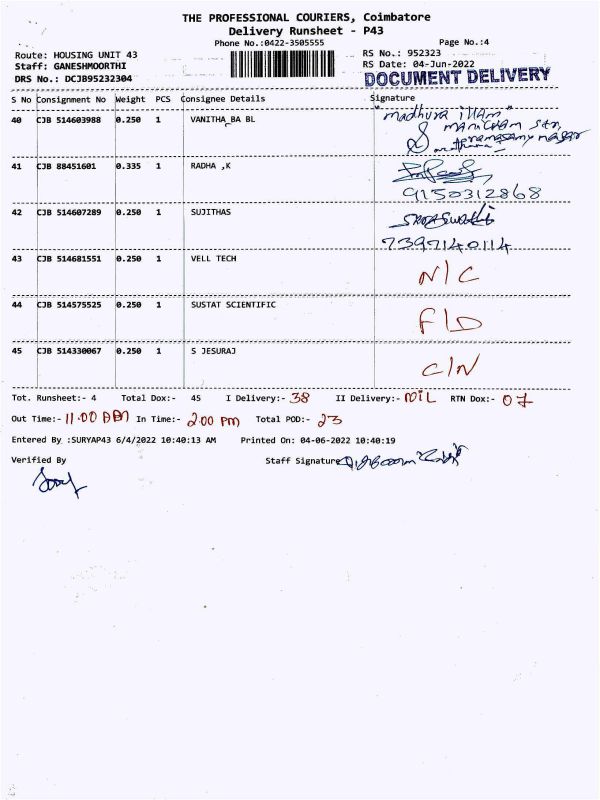 THE PROFESSIONAL COURIERS, Coimbatore
Delivery Runsheet - P43
Phone No.:0422-3505555
Page No.:4
Route: HOUSING UNIT 43
RS No.: 952323
Staff: GANESHMOORTHI
RS Date: 04-Jun-2022
DRS No.: DCJB95232304
DOCUMENT DELIVERY
S No Consignment No Weight PCS Consignee Details Signature
40 CJB 514603988 0.250 1 VANITHA BA BL "madhura illam"
41 CJB 88451601 0.335 1 RADHA ,K
9150312868
42 CJB 514607289 0.250 1 SUJITHAS
7397140114
43 CJB 514681551 0.250 1 VELL TECH N/C
44 CJB 514575525 0.250 1 SUSTAT SCIENTIFIC F/D
45 CJB 514330067 0.250 1 S JESURAJ C/N
Tot. Runsheet:- 4 Total Dox:- 45 I Delivery:- 38 II Delivery:- NIL RTN Dox:- 07
Out Time:- 11.00 AM In Time:- 2.00 PM Total POD:- 23
Entered By :SURYAP43 6/4/2022 10:40:13 AM Printed On: 04-06-2022 10:40:19
Verified By Staff Signature